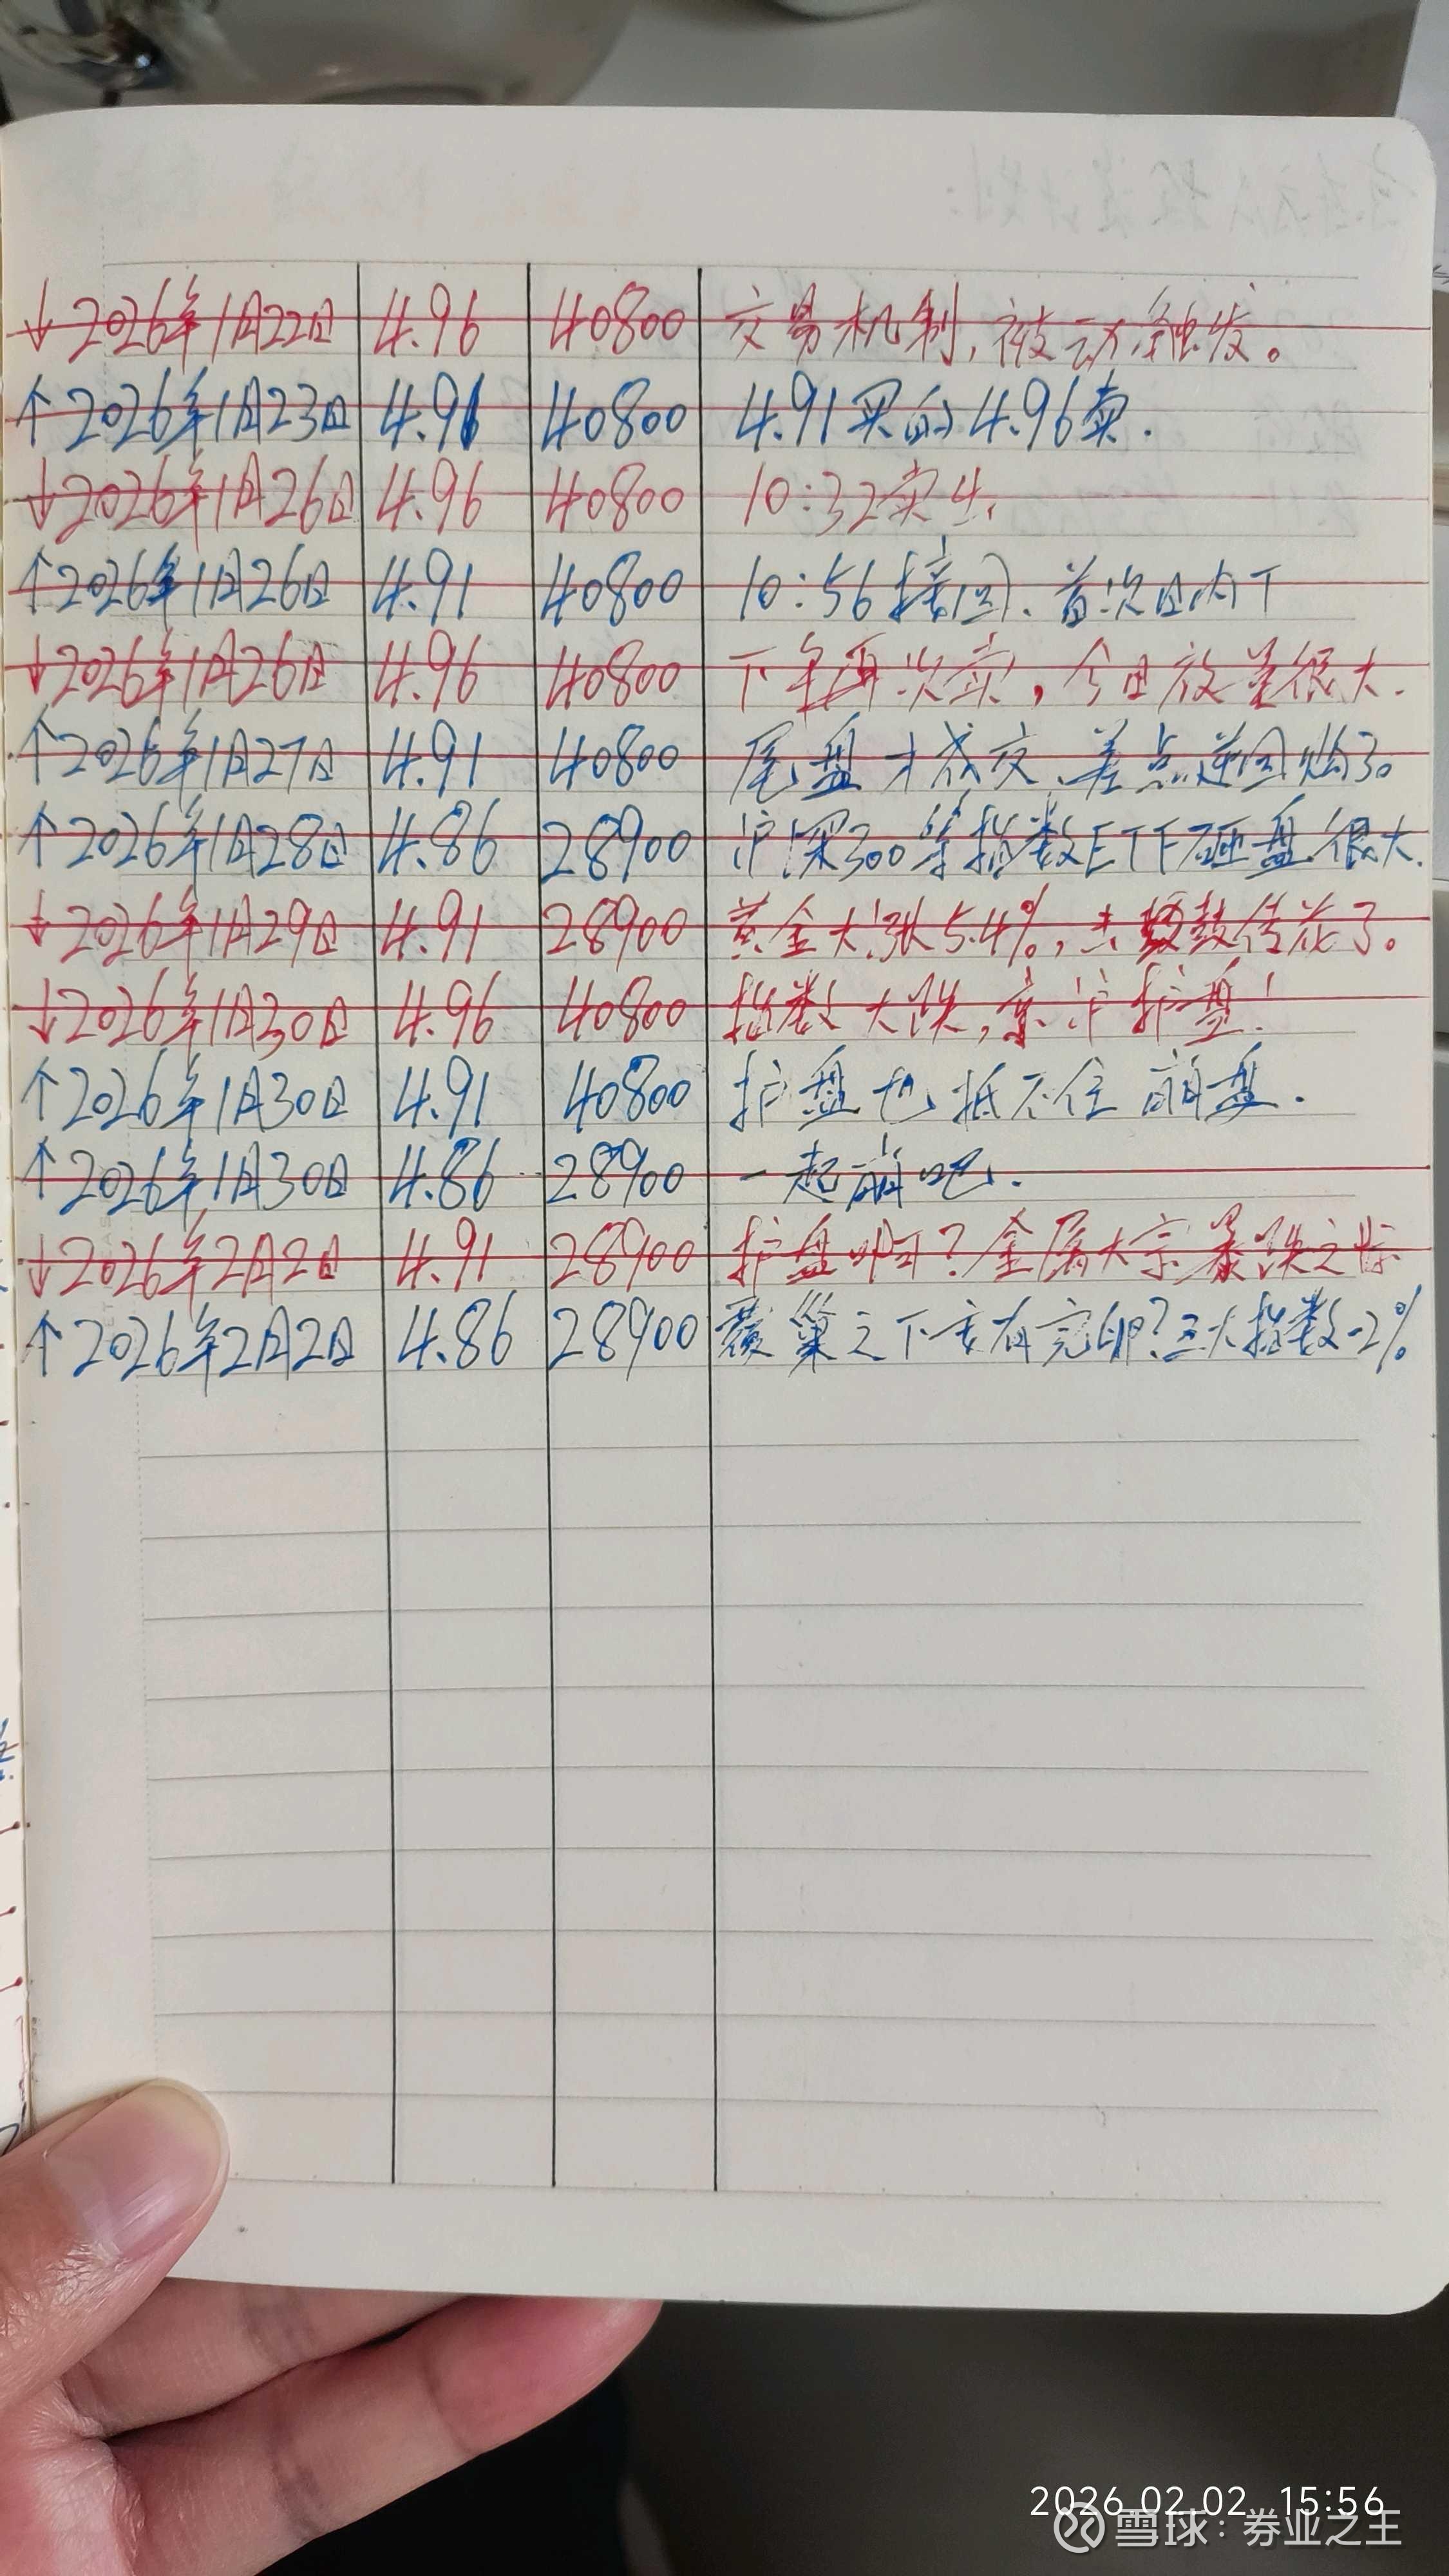 ↓2026年1月22日 4.96 40800 交易机制,被动触发。
↑2026年1月23日 4.91 40800 4.91买的4.96卖.
↓2026年1月26日 4.96 40800 10:32卖出,
↑2026年1月26日 4.91 40800 10:56接回、首次日内T
↓2026年1月26日 4.96 40800 下午再次卖,今日波差很大.
↑2026年1月27日 4.91 40800 尾盘才成交、差点逆回购了。
↑2026年1月28日 4.86 28900 沪深300等指数ETF砸盘很大.
↓2026年1月29日 4.91 28900 黄金大涨5.4%,击鼓传花了。
↓2026年1月30日 4.96 40800 指数大跌,京沪护盘!
↑2026年1月30日 4.91 40800 护盘也抵不住崩盘.
↑2026年1月30日 4.86 28900 一起崩吧.
↓2026年2月2日 4.91 28900 护盘啊?金属大宗暴跌之际
↑2026年2月2日 4.86 28900 覆巢之下安有完卵?三大指数-2%
2026.02.02 15:56
雪球:券业之主